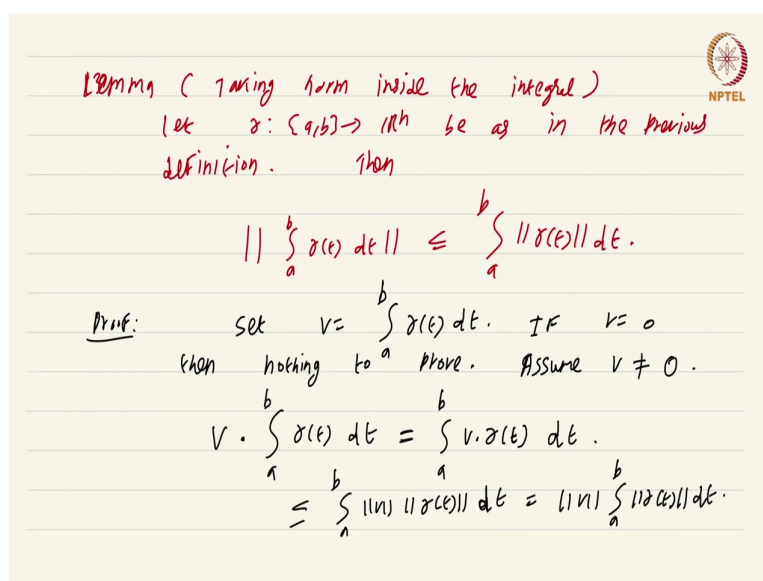 NPTEL
Lemma ( Taking norm inside the integral )
let γ: [a,b] → ℝⁿ be as in the previous
definition. Then
|| ∫ₐᵇ γ(t) dt || ≤ ∫ₐᵇ || γ(t) || dt.
Proof: Set V = ∫ₐᵇ γ(t) dt. IF V = 0
then nothing to prove. Assume V ≠ 0.
V · ∫ₐᵇ γ(t) dt = ∫ₐᵇ V·γ(t) dt.
≤ ∫ₐᵇ ||V|| ||γ(t)|| dt = ||V|| ∫ₐᵇ ||γ(t)|| dt.